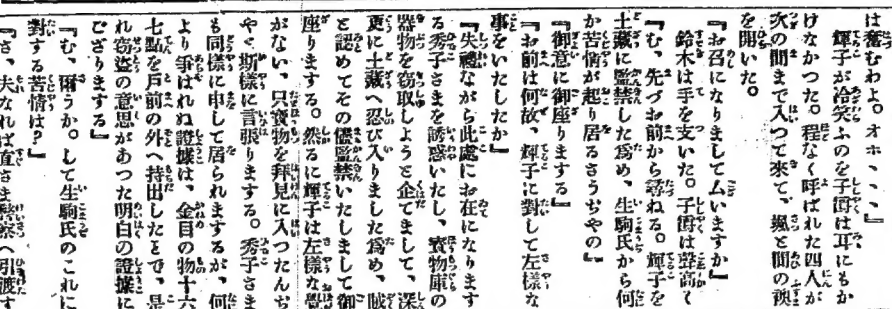 は奮むわよ。オホヽヽヽ』
輝子が冷笑ふのを子爵は耳にもか
けなかつた。程なく呼ばれた四人が
次の間まで入つて來て、颯と間の襖
を開いた。
『お召になりましてムいますか』
鈴木は手を支いた。子爵は聲高く
『む、先づお前から尋ねる。輝子を
土藏に監禁した爲め、生駒氏から何
か苦情が起り居るさうぢやの』
『御意に御座りまする』
『お前は何故、輝子に對して左樣な
事をいたしたか』
『失禮ながら此處にお在になります
る秀子さまを誘惑いたし、寳物庫の
器物を窃取しようと企てまして、深
更に土藏へ忍び入りました爲め、賊
と認めてその儘監禁いたしまして御
座りまする。然るに輝子は左樣な覺
がない、只寳物を拜見に入つたんぢ
やと斯樣に言張りまする。秀子さま
も同樣に申して居られまするが、何
より爭はれぬ證據は、金目の物十六
七點を戸前の外へ持出したことで、是
れ窃盜の意思があつた明白の證據に
ござりまする』
『む、爾うか。して生駒氏のこれに
對する苦情は?』
『さ、夫なれば直さま警察へ引渡す